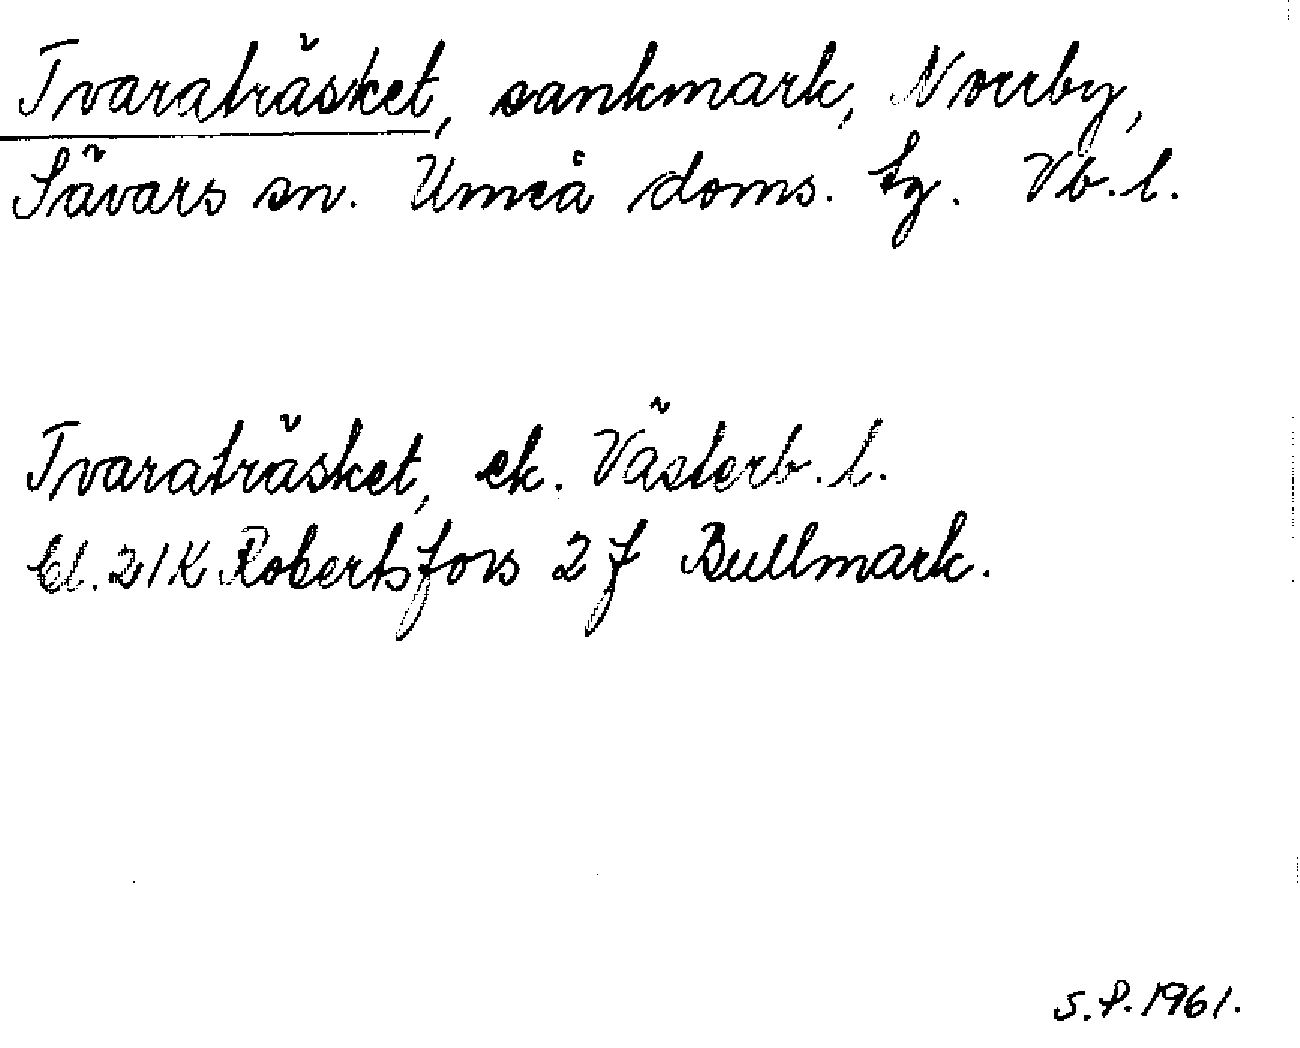 Tvaraträsket, sankmark, Norrby,
Sävars sn. Umeå doms. tg. Vb.l.
Tvaraträsket, ek. Västerb.l.
Bl. 21K Robertsfors 2 f Bullmark.
S.P.1961.